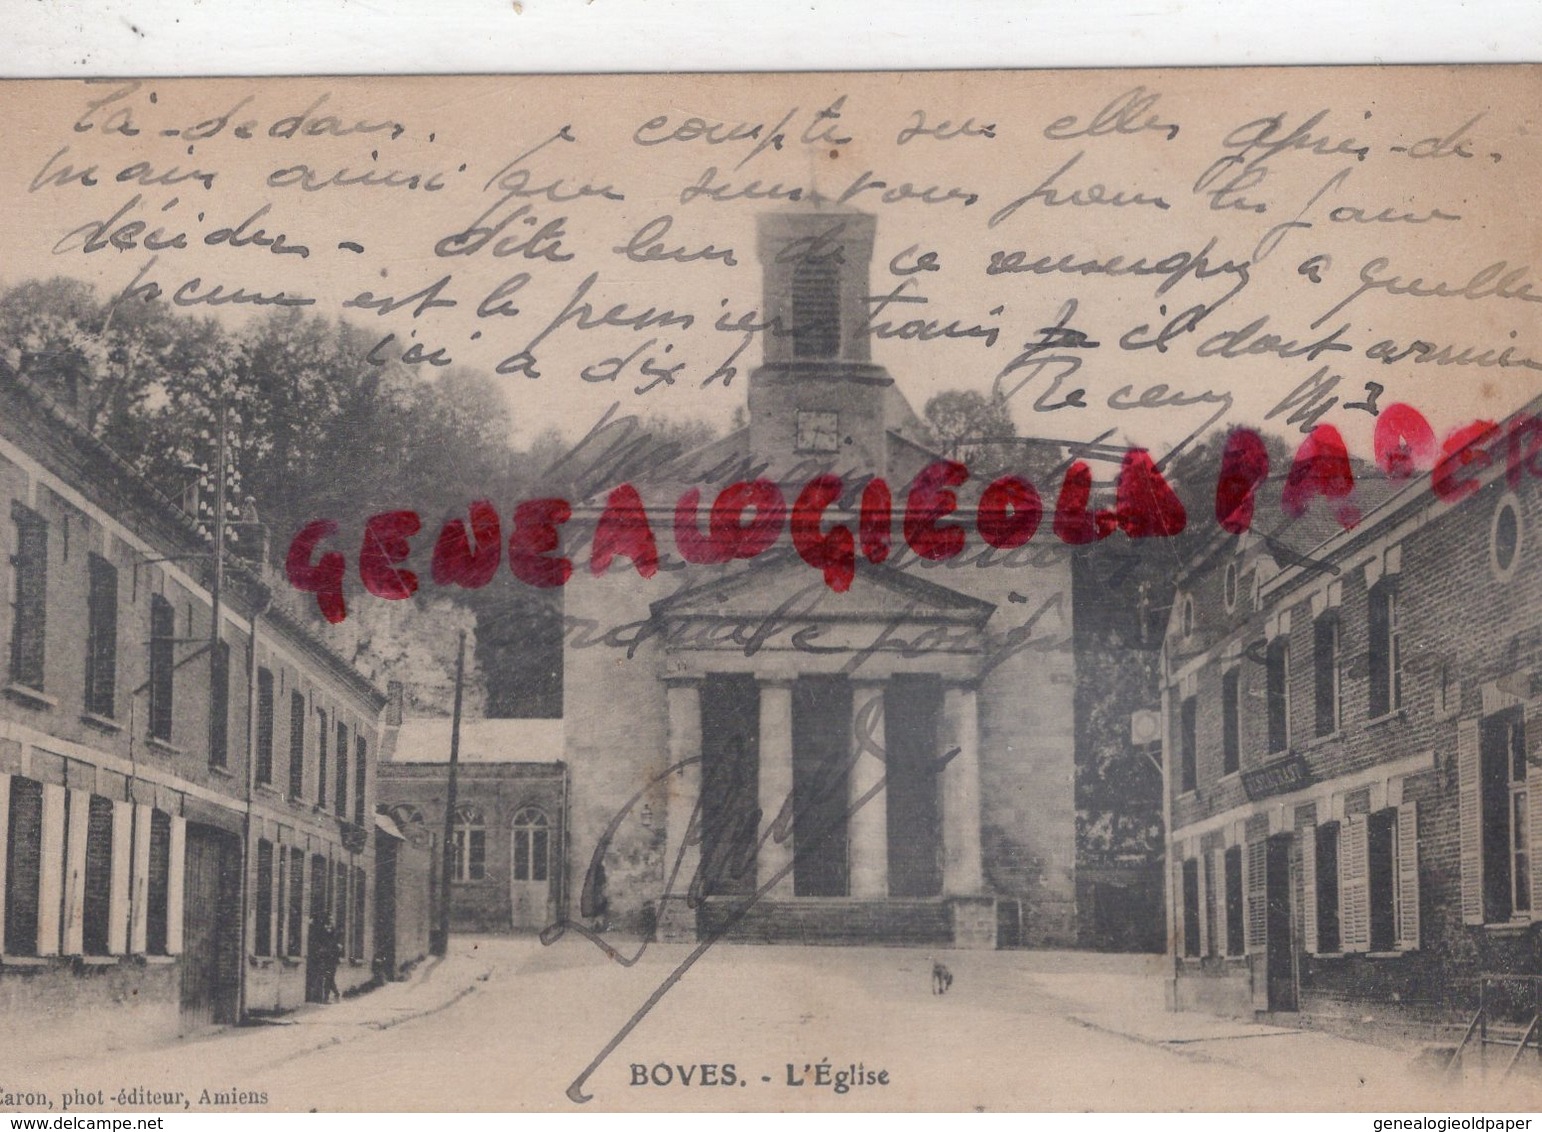 là-dedans. Je compte sur elles après-de-
main ainsi que sur vous pour les faire
décider - dîte leur de ce renseigner à quelle
heure est le premier train il doit arriver
ici à dix h Recevez
Maman
cordiale poignée
GENEALOGIEOLDPAPER
RESTAURANT
BOVES. - L'Église
Caron, phot-éditeur, Amiens
delcampe.net
genealogieoldpaper